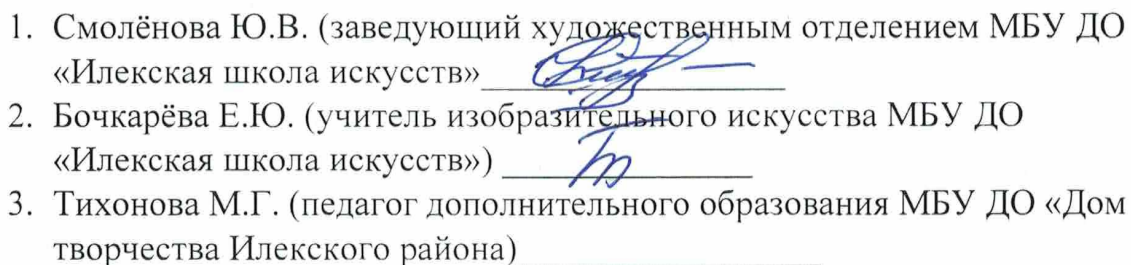 1. Смолёнова Ю.В. (заведующий художественным отделением МБУ ДО
«Илекская школа искусств»
2. Бочкарёва Е.Ю. (учитель изобразительного искусства МБУ ДО
«Илекская школа искусств»)
3. Тихонова М.Г. (педагог дополнительного образования МБУ ДО «Дом
творчества Илекского района)